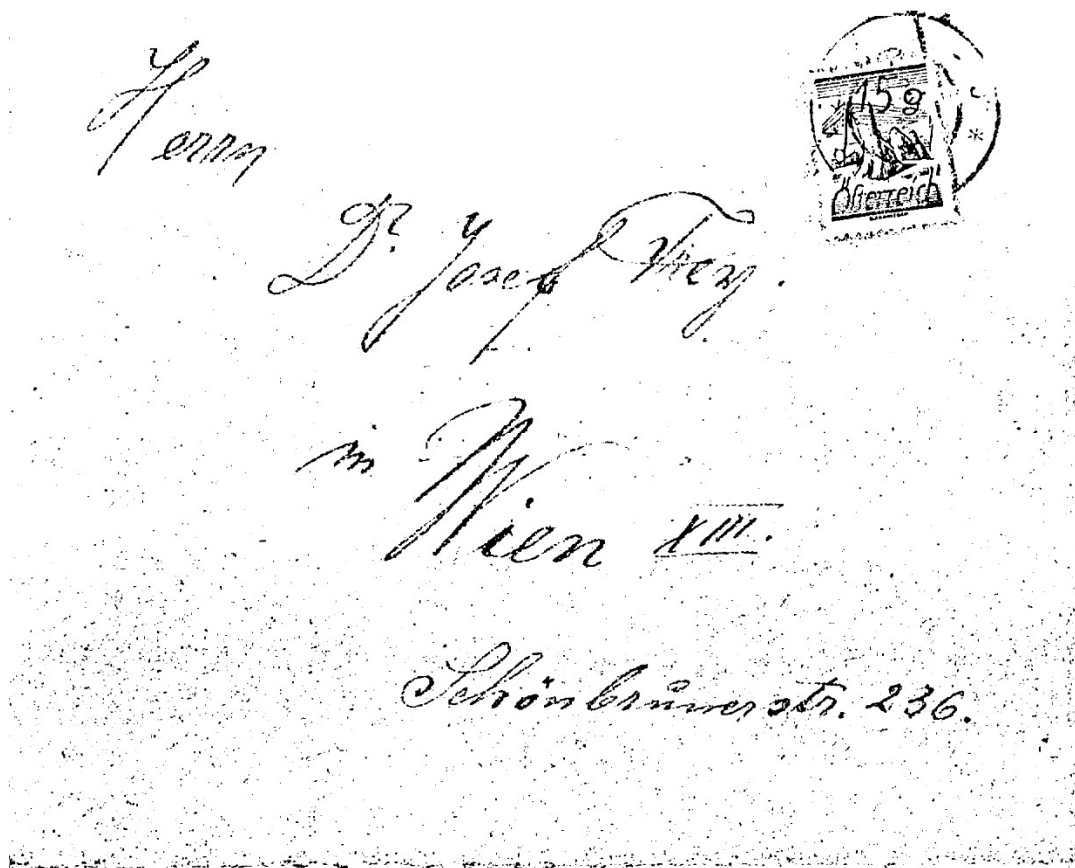 15 g
Österreich
Herrn
Dr. Josef Frey.
in Wien XIII.
Schönbrunnerstr. 236.